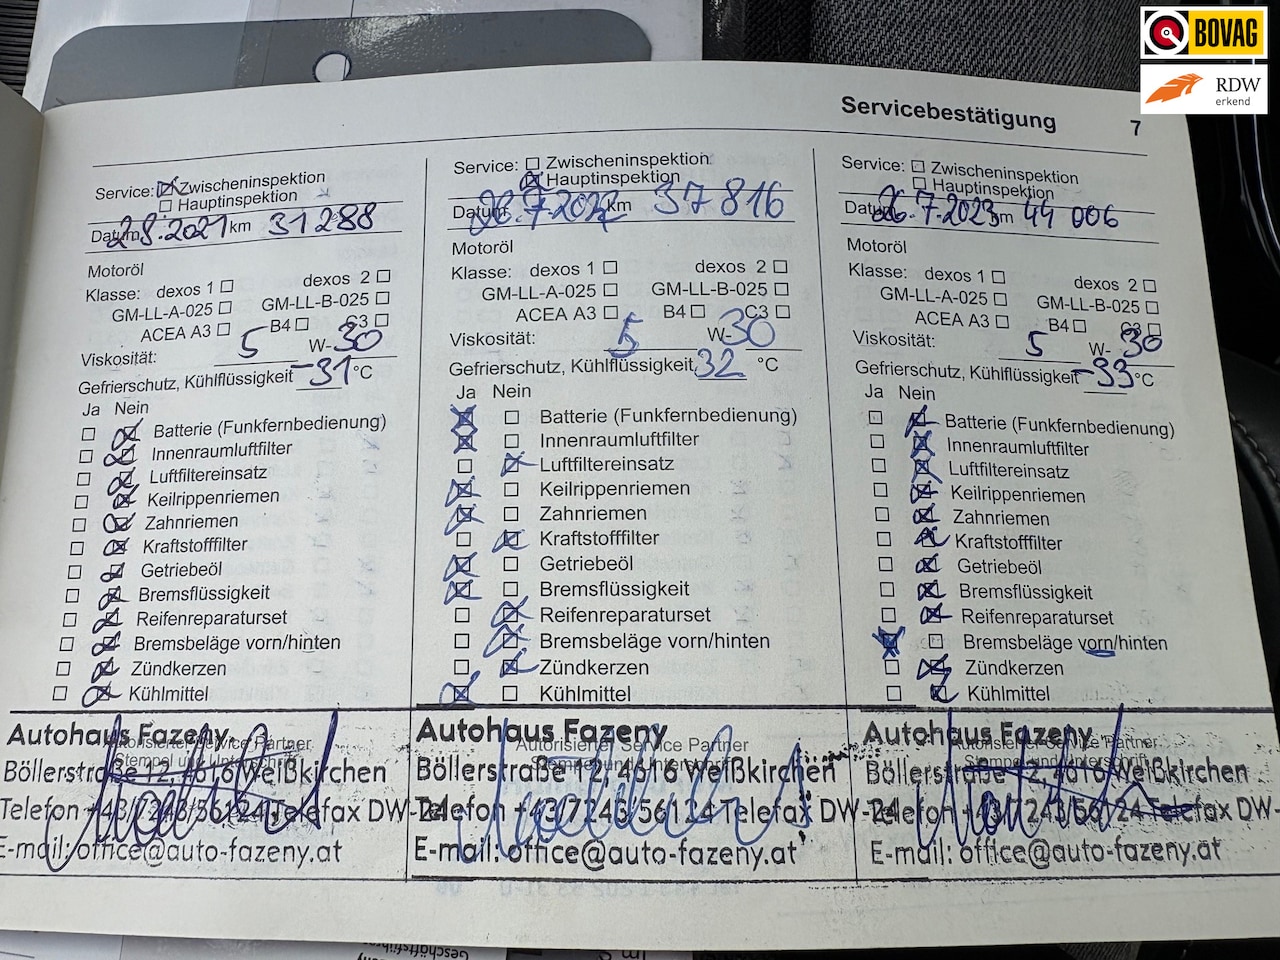 BOVAG
RDW
erkend
Servicebestätigung 7
Service: Zwischeninspektion
Hauptinspektion
Datum 2.8.2021 km 31288
Motoröl
Klasse: dexos 1 dexos 2
GM-LL-A-025 GM-LL-B-025
ACEA A3 B4 C3
Viskosität: 5 W-30
Gefrierschutz, Kühlflüssigkeit -31 °C
Ja Nein
Batterie (Funkfernbedienung)
Innenraumluftfilter
Luftfiltereinsatz
Keilrippenriemen
Zahnriemen
Kraftstofffilter
Getriebeöl
Bremsflüssigkeit
Reifenreparaturset
Bremsbeläge vorn/hinten
Zündkerzen
Kühlmittel
Autohaus Fazeny
Autorisierter Service Partner
Stempel und Unterschrift
Böllerstraße 12, 4616 Weißkirchen
Telefon +43/7243/56124 Telefax DW-24
E-mail: office@auto-fazeny.at
Service: Zwischeninspektion
Hauptinspektion
Datum .7.2022 km 37816
Motoröl
Klasse: dexos 1 dexos 2
GM-LL-A-025 GM-LL-B-025
ACEA A3 B4 C3
Viskosität: 5 W-30
Gefrierschutz, Kühlflüssigkeit 32 °C
Ja Nein
Batterie (Funkfernbedienung)
Innenraumluftfilter
Luftfiltereinsatz
Keilrippenriemen
Zahnriemen
Kraftstofffilter
Getriebeöl
Bremsflüssigkeit
Reifenreparaturset
Bremsbeläge vorn/hinten
Zündkerzen
Kühlmittel
Autohaus Fazeny
Autorisierter Service Partner
Stempel und Unterschrift
Böllerstraße 12, 4616 Weißkirchen
Telefon +43/7243/56124 Telefax DW-24
E-mail: office@auto-fazeny.at
Service: Zwischeninspektion
Hauptinspektion
Datum 26.7.2023 km 44 006
Motoröl
Klasse: dexos 1 dexos 2
GM-LL-A-025 GM-LL-B-025
ACEA A3 B4 C3
Viskosität: 5 W-30
Gefrierschutz, Kühlflüssigkeit -33 °C
Ja Nein
Batterie (Funkfernbedienung)
Innenraumluftfilter
Luftfiltereinsatz
Keilrippenriemen
Zahnriemen
Kraftstofffilter
Getriebeöl
Bremsflüssigkeit
Reifenreparaturset
Bremsbeläge vorn/hinten
Zündkerzen
Kühlmittel
Autohaus Fazeny
Autorisierter Service Partner
Stempel und Unterschrift
Böllerstraße 12, 4616 Weißkirchen
Telefon +43/7243/56124 Telefax DW-24
E-mail: office@auto-fazeny.at